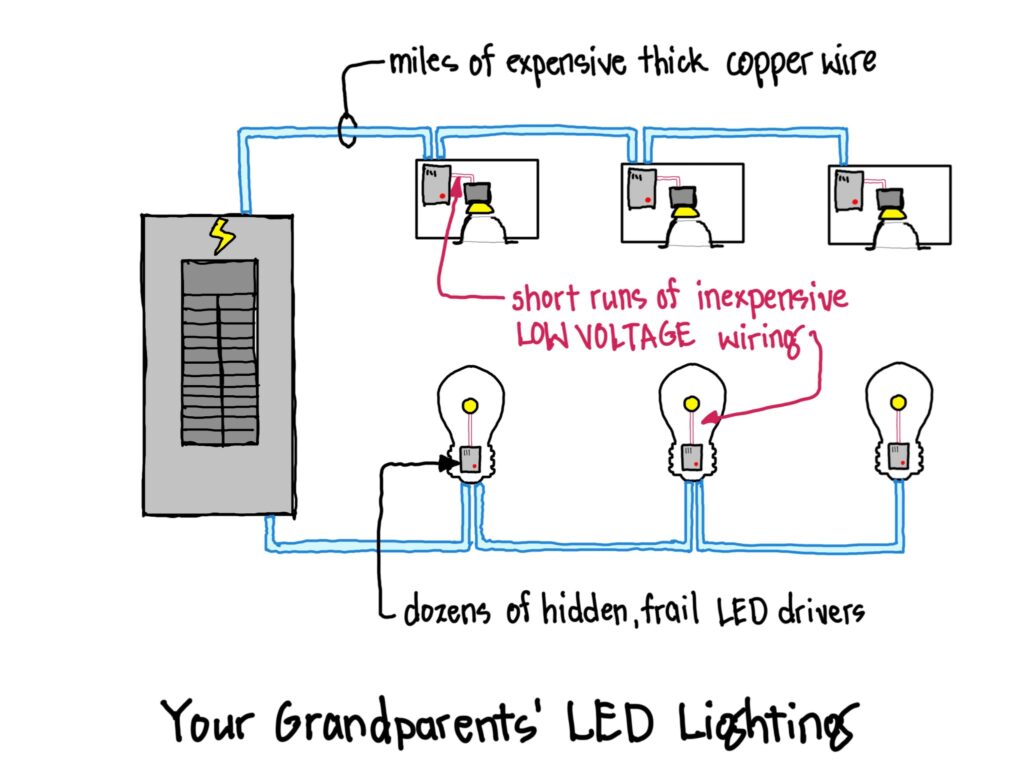 miles of expensive thick copper wire
short runs of inexpensive
LOW VOLTAGE wiring
dozens of hidden, frail LED drivers
Your Grandparents' LED Lighting